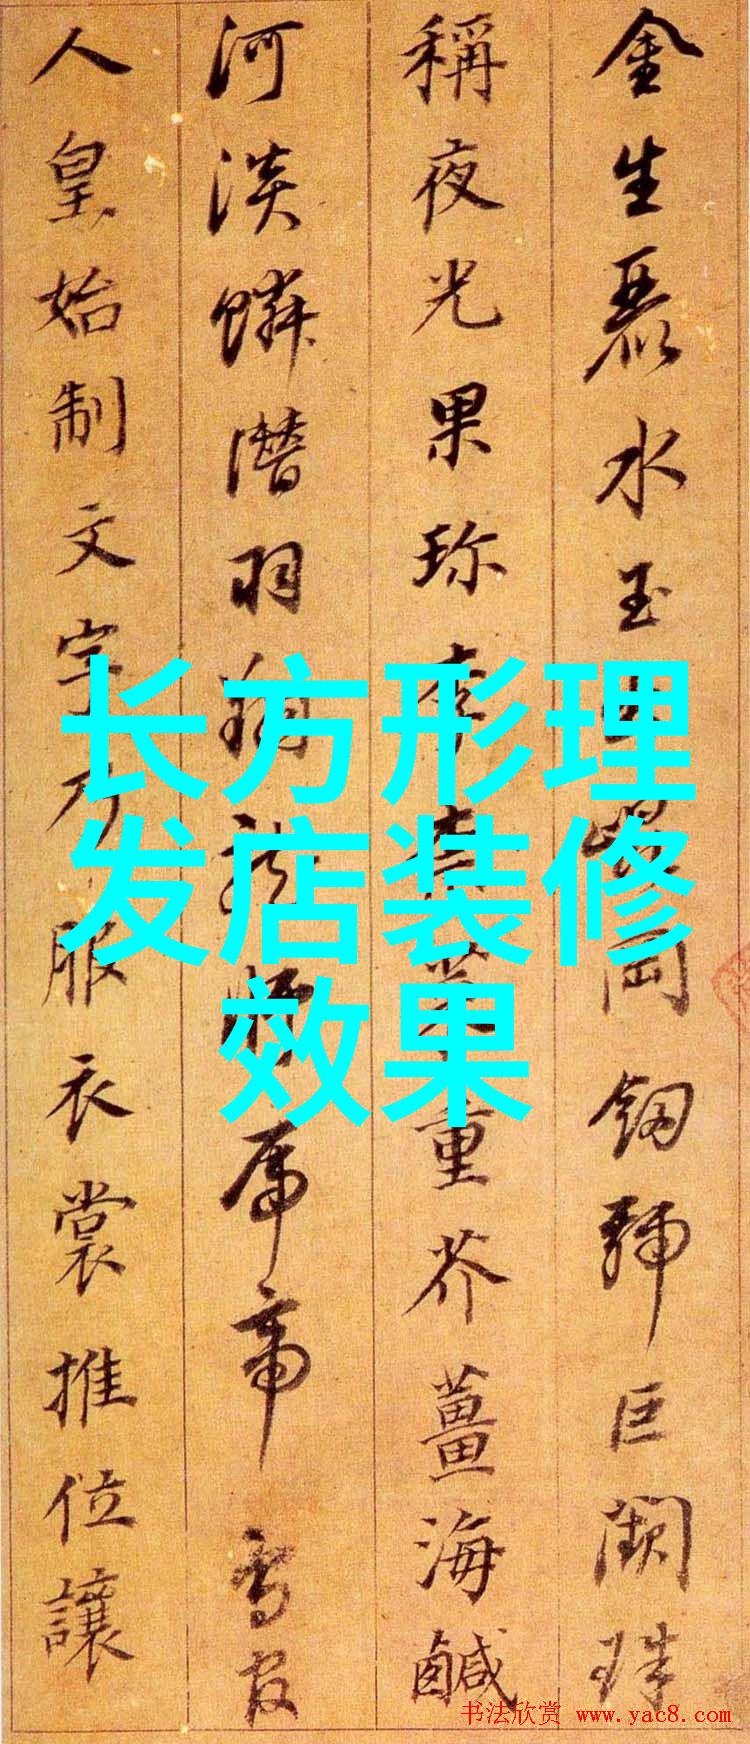 金生麗水玉出崑岡劍號巨闕珠
稱夜光果珍李柰菜重芥薑海鹹
河淡鱗潛羽翔龍師帝鳥官
人皇始制文字乃服衣裳推位讓
长方形理
发店装修
效果
书法欣赏 www.yac8.com